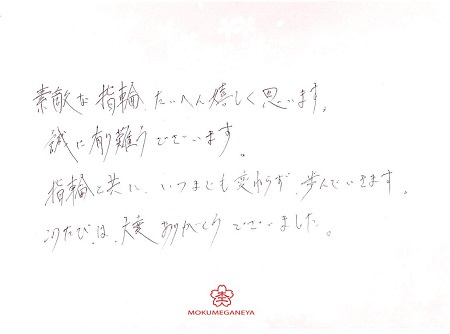 素敵な指輪、たいへん嬉しく思います。
誠に有り難うございます。
指輪と共に、いつまでも変わらず、歩んでいきます。
このたびは、大変ありがとうございました。
MOKUMEGANEYA